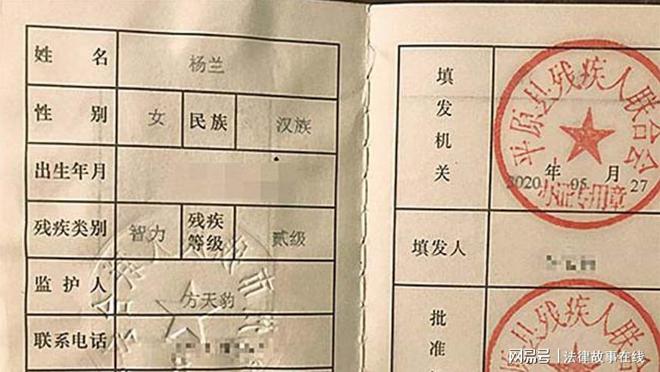 姓 名 杨兰
性 别 女 民族 汉族
出生年月
残疾类别 智力 残疾等级 贰级
监护人 方天豹
联系电话
填发机关
平原县残疾人联合会
2020 年 05 月 27
办证专用章
填发人
批准
平原县残疾人联合会
搜狐号|法律故事在线